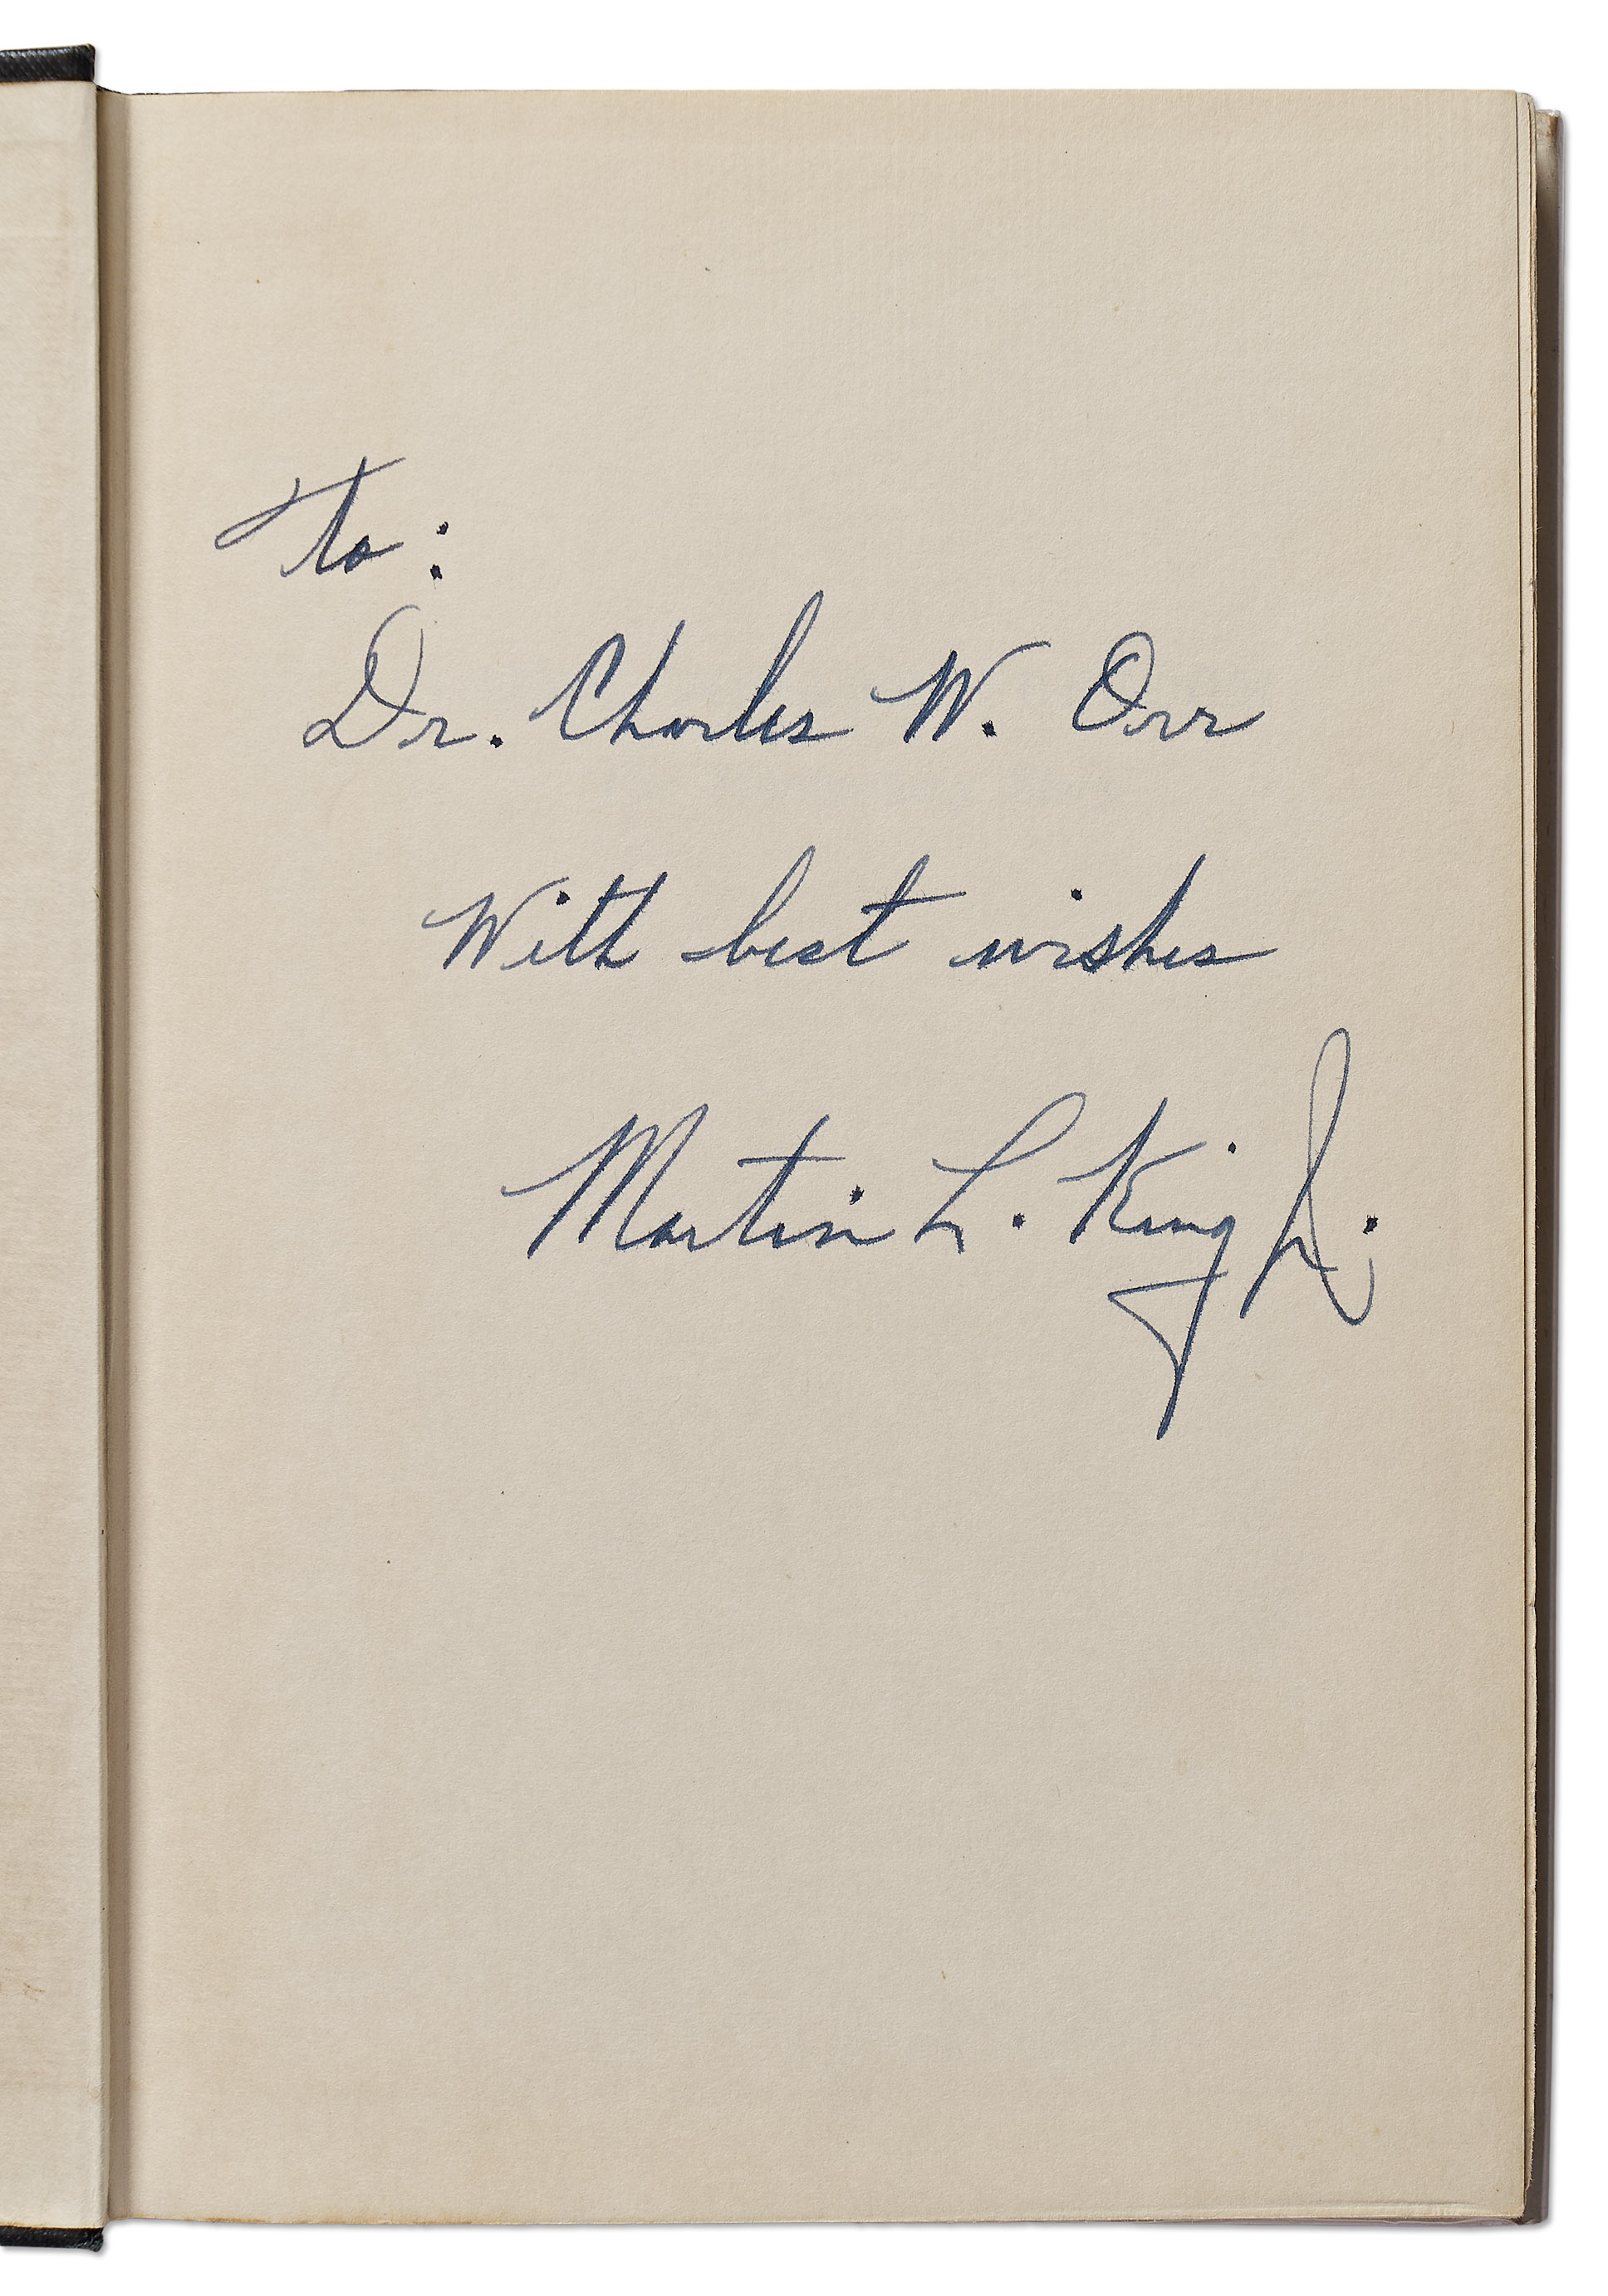 To:
Dr. Charles W. Orr
With best wishes
Martin L. King Jr.